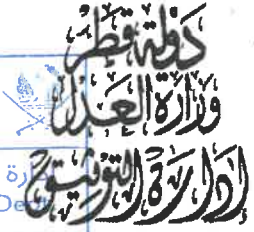 دَوْلَة قَطَر
وِزَارَةُ العَدْل
إِدَارَةُ التَّوثِيق